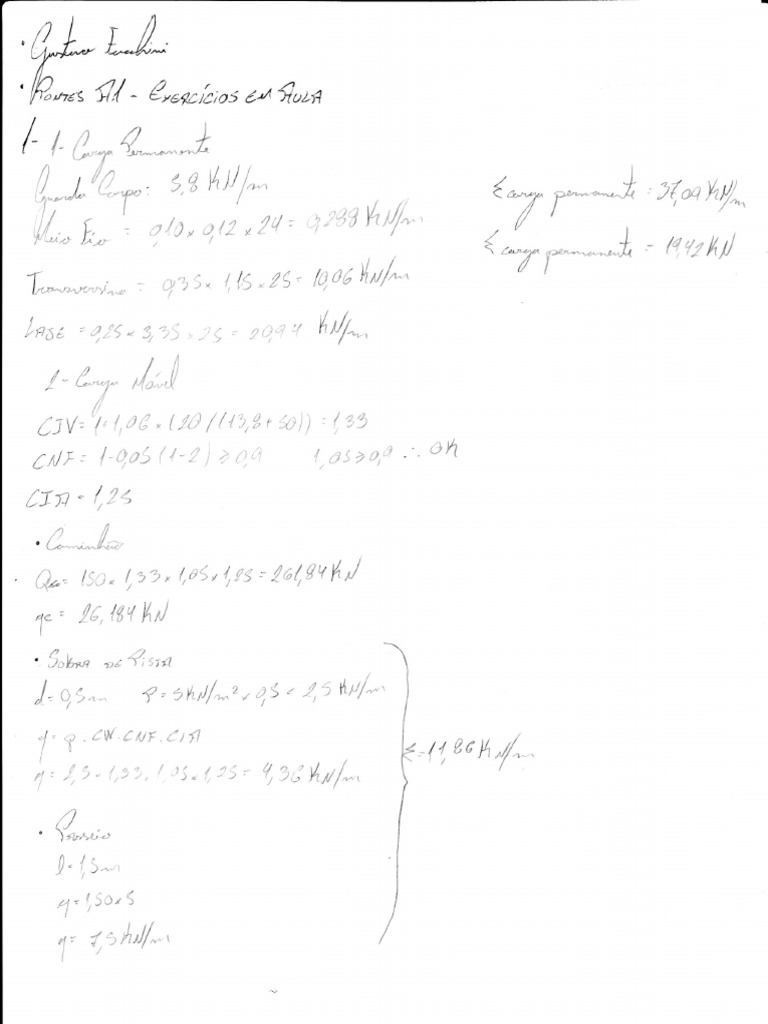 • Gustavo
• PONTES A1 - EXERCÍCIOS EM AULA
1- 1- Carga Permanente
Guarda Corpo: 5,8 KN/m
Meio Fio = 0,10 x 0,12 x 24 = 0,288 KN/m
Transversina = 0,35 x 1,15 x 25 = 10,06 KN/m
LAJE = 0,25 x 3,35 x 25 = 20,94 KN/m
Σ carga permanente = 37,09 KN/m
Σ carga permanente = 19,42 KN
2- Carga Móvel
CIV = 1+1,06 x (20/(13,8+50)) = 1,33
CNF = 1-0,05(1-2) ≥ 0,9 1,05 ≥ 0,9 ∴ OK
CIA = 1,25
• Caminhão
= 150 x 1,33 x 1,05 x 1,25 = 261,84 KN
qc = 26,184 KN
• SOBRA DE PISTA
d = 0,5m P = 5 KN/m² x 0,5 = 2,5 KN/m
q = p . CIV . CNF . CIA
q = 2,5 x 1,33 . 1,05 x 1,25 = 4,36 KN/m
• Passeio
l = 1,5m
q = 1,50x5
q = 7,5 KN/m
Σ = 11,86 KN/m